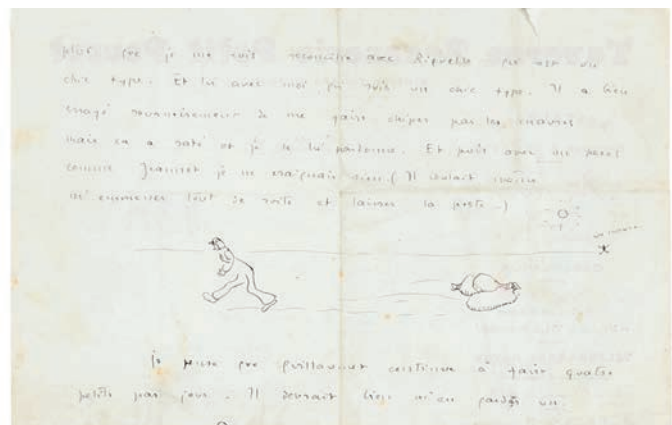 plus que je me suis réconcilié avec Riguelle qui est un
chic type. Et lui avec moi qui suis un chic type. Il a bien
essayé sournoisement de me faire chiper par les maures
mais ça a raté et je le lui pardonne. Et puis avec un
comme Jeannot je ne craignais rien. (Il voulait même
m'emmener tout de suite et laisser la poste.)
un maure
Je pense que Guillaumet continue à faire quatre
petits par jour. Il devrait bien m'en garder un